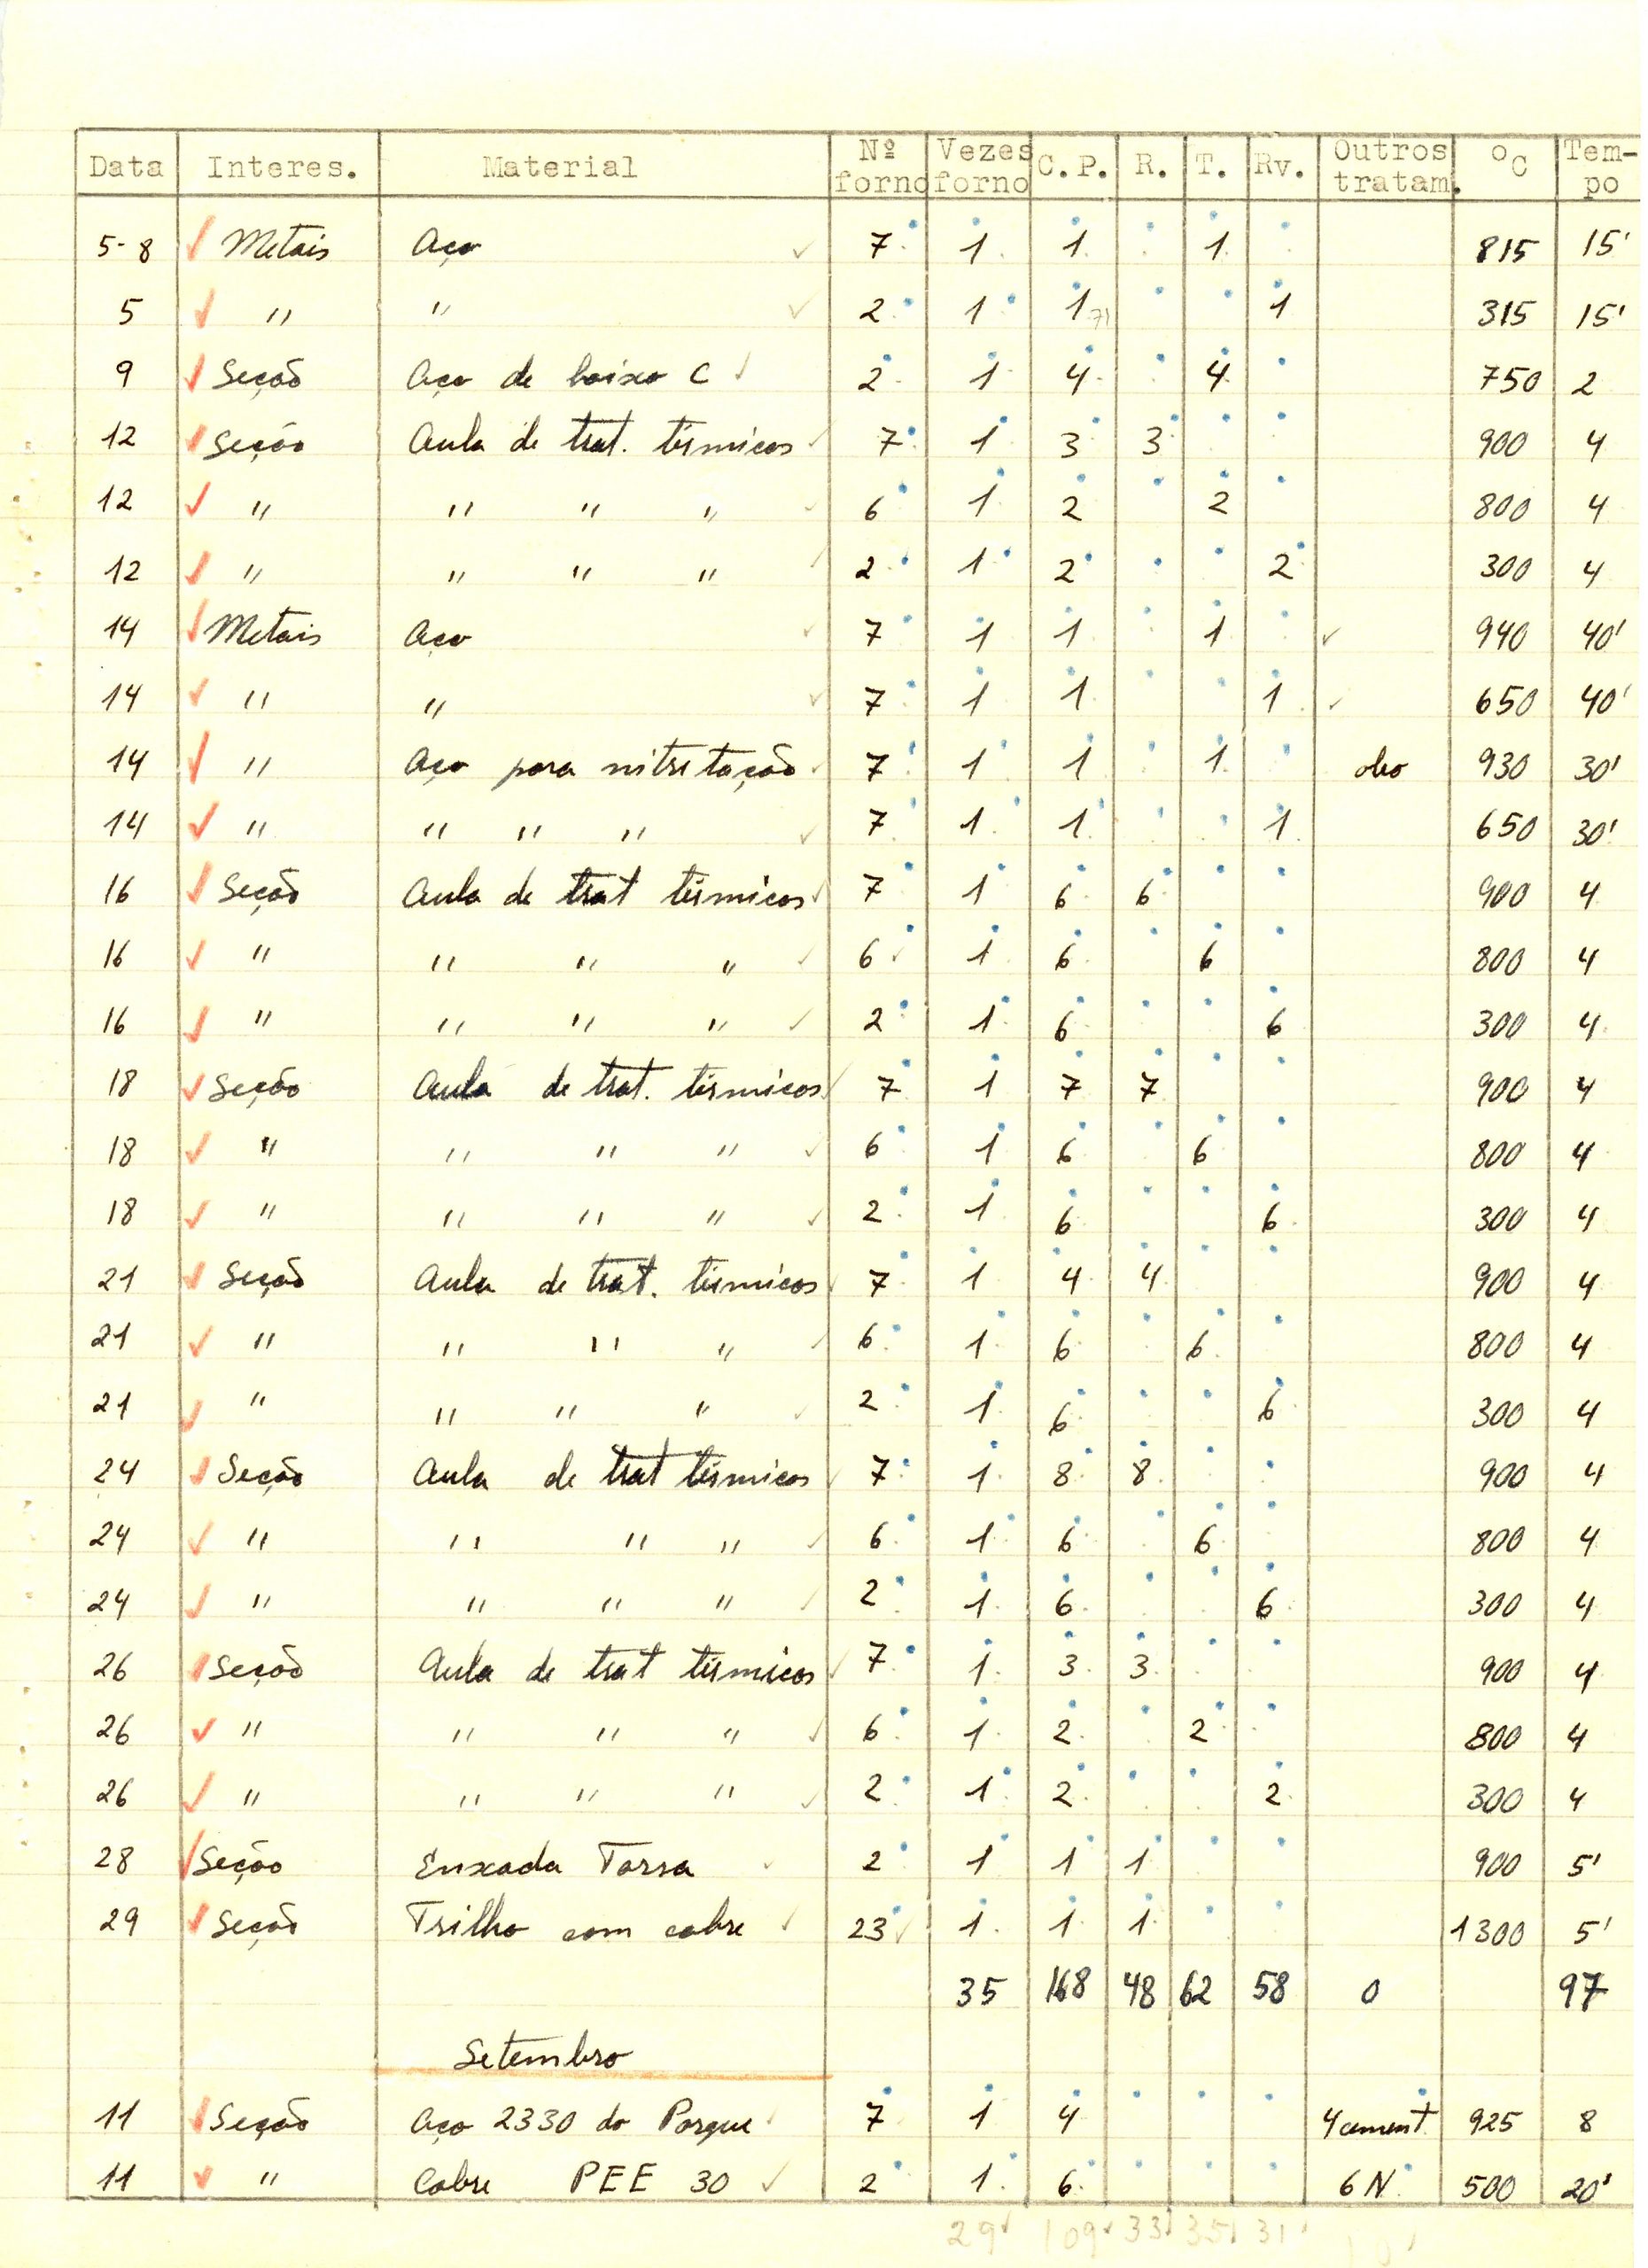 Data Interes. Material Nº forno Vezes forno C.P. R. T. Rv. Outros tratam. ºC Tem-po
5-8 Metais Aço 7 1 1 1 815 15'
5 " " 2 1 1 1 315 15'
9 Seção Aço de baixo C 2 1 4 4 750 2
12 Seção Aula de trat. térmicos 7 1 3 3 900 4
12 " " " " 6 1 2 2 800 4
12 " " " " 2 1 2 2 300 4
14 Metais Aço 7 1 1 1 940 40'
14 " " 7 1 1 1 650 40'
14 " Aço para nitretação 7 1 1 1 oleo 930 30'
14 " " " " 7 1 1 1 650 30'
16 Seção Aula de trat térmicos 7 1 6 6 900 4
16 " " " " 6 1 6 6 800 4
16 " " " " 2 1 6 6 300 4
18 Seção Aula de trat. térmicos 7 1 7 7 900 4
18 " " " " 6 1 6 6 800 4
18 " " " " 2 1 6 6 300 4
21 Seção Aula de trat. térmicos 7 1 4 4 900 4
21 " " " " 6 1 6 6 800 4
21 " " " " 2 1 6 6 300 4
24 Seção Aula de trat térmicos 7 1 8 8 900 4
24 " " " " 6 1 6 6 800 4
24 " " " " 2 1 6 6 300 4
26 Seção Aula de trat térmicos 7 1 3 3 900 4
26 " " " " 6 1 2 2 800 4
26 " " " " 2 1 2 2 300 4
28 Seção Enxada Tarsa 2 1 1 1 900 5'
29 Seção Trilho com cobre 23 1 1 1 1300 5'
35 168 48 62 58 0 97
Setembro
11 Seção Aço 2330 do Parque 7 1 4 4 cement 925 8
11 " Cobre PEE 30 2 1 6 6 N 500 20'
29 109 33 35 31